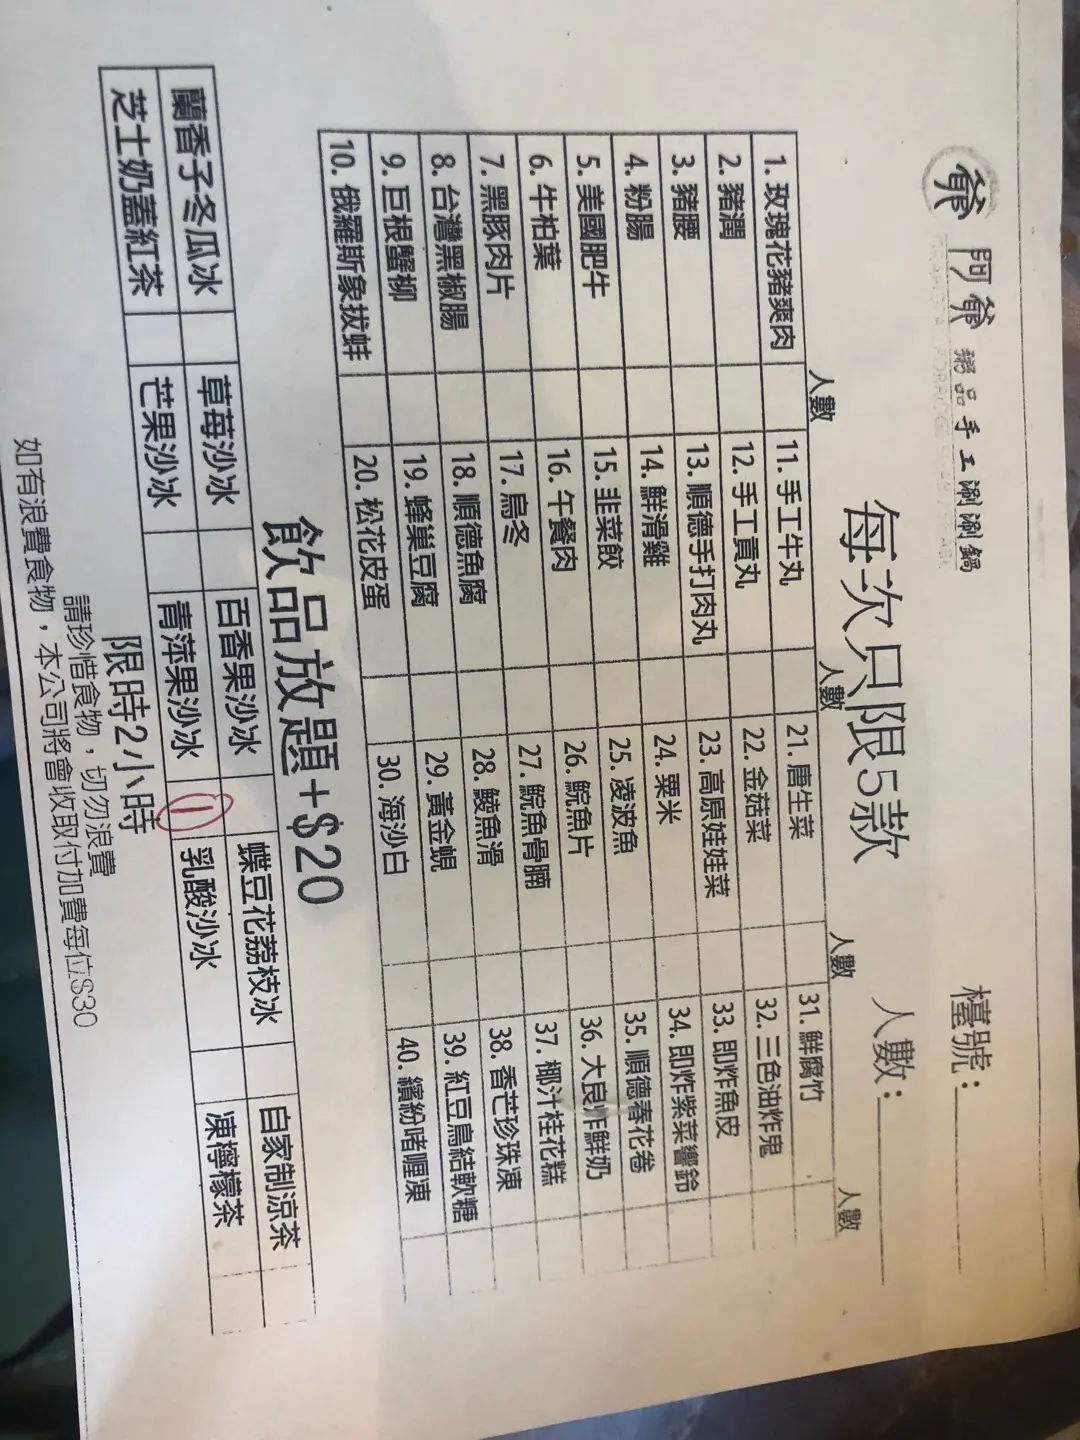 爺 阿爺 粥品手工涮涮鍋
檯號：
每次只限5款 人數：
人數 人數 人數 人數
1. 玫瑰花豬爽肉 11. 手工牛丸 21. 唐生菜 31. 鮮腐竹
2. 豬潤 12. 手工貢丸 22. 金菇菜 32. 三色油炸鬼
3. 豬腰 13. 順德手打肉丸 23. 高原娃娃菜 33. 即炸魚皮
4. 粉腸 14. 鮮滑雞 24. 粟米 34. 即炸紫菜響鈴
5. 美國肥牛 15. 韭菜餃 25. 凌波魚 35. 順德春花卷
6. 牛柏葉 16. 午餐肉 26. 鯇魚片 36. 大良炸鮮奶
7. 黑豚肉片 17. 烏冬 27. 鯇魚骨腩 37. 椰汁桂花糕
8. 台灣黑椒腸 18. 順德魚腐 28. 鯪魚滑 38. 香芒珍珠凍
9. 巨根蟹柳 19. 蜂巢豆腐 29. 黃金蜆 39. 紅豆鳥結軟糖
10. 俄羅斯象拔蚌 20. 松花皮蛋 30. 海沙白 40. 繽紛啫喱凍
飲品放題+$20
蘭香子冬瓜冰 草莓沙冰 百香果沙冰 蝶豆花荔枝冰 自家制涼茶
芝士奶蓋紅茶 芒果沙冰 青萍果沙冰 1 乳酸沙冰 凍檸檬茶
限時2小時
請珍惜食物，切勿浪費
如有浪費食物，本公司將會收取付加費每位$30